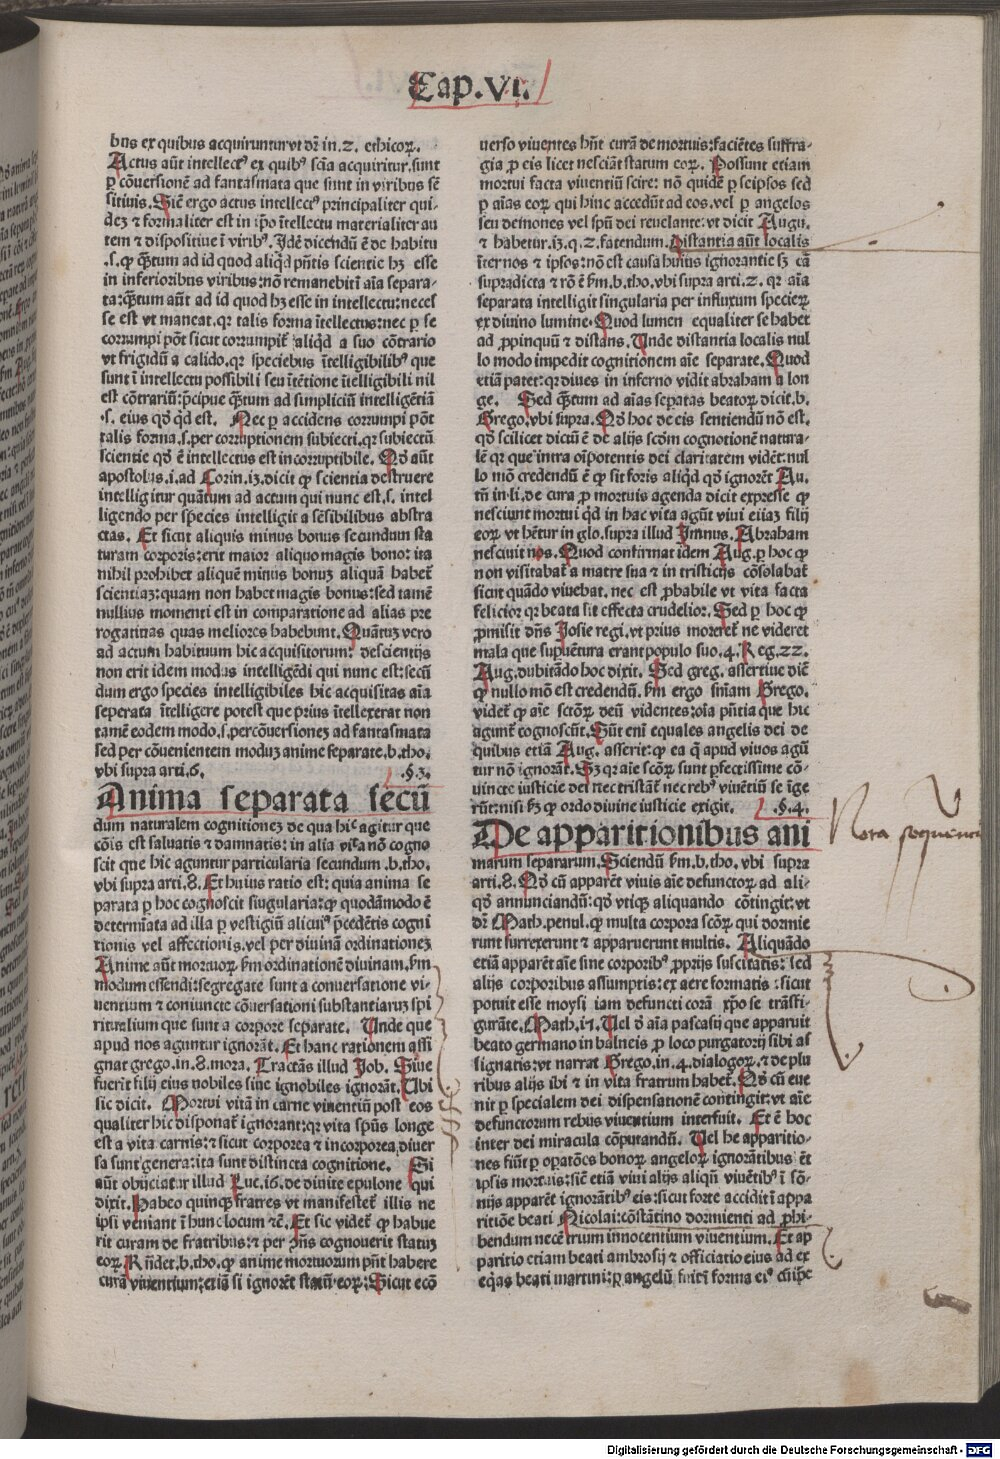 Cap.VI.
bus ex quibus acquiruntur vt dr̄ in.2. ethicoꝝ.
Actus aūt intellectꝰ ex quibꝰ sc̄ia acquiritur.sunt
ꝑ cōuersionē ad fantasmata que sunt in viribus sē
sitiuis.Sic̄ ergo actus intellectꝰ principaliter qui-
dez ⁊ formaliter est in ip̄o ītellectu materialiter au
tem ⁊ dispositiue ī viribꝰ.Idē dicendū ē de habitu
.s.ꝙ q̄ꝫtum ad id quod aliqd̄ pn̄tis scientie hꝫ esse
in inferioribus viribus:nō remanebit ī aīa separa-
ta:q̄ꝫtum aūt ad id quod hꝫ esse in intellectu:neces
se est vt maneat.qꝛ talis forma ītellectus:nec ꝑ se
corrumpi pōt sicut corrumpit̄ aliqd̄ a suo cōtrario
vt frigidū a calido.qꝛ speciebus ītelligibilibꝰ que
sunt ī intellectu possibili seu ītētione ītelligibili nil
est cōtrariū:p̄cipue q̄ꝫtum ad simpliciū intelligētiā
.s. eius qd̄ qd̄ est. Nec ꝑ accidens corrumpi pōt
talis forma.s.per corruptionem subiecti.qꝛ subiectū
scientie qd̄ ē intellectus est incorruptibile. Qd̄ aūt
apostolus.i.ad Corin.13.dicit ꝙ scientia destruere
intelligitur quātum ad actum qui nunc est.s. intel
ligendo per species intelligit a sēsibilibus abstra
ctas. Et sicut aliquis minus bonus secundum sta
turam corporis:erit maior aliquo magis bono:ita
nihil prohibet aliquē minus bonuz aliquā habet̄
scientiaz:quam non habet magis bonus:sed tamē
nullius momenti est in comparatione ad alias pre
rogatiuas quas meliores habebunt.Quātuz vero
ad actum habituum hic acquisitorum: descientijs
non erit idem modus intelligēdi qui nunc est:secū
dum ergo species intelligibiles hic acquisitas aīa
seperata ītelligere potest que prius ītellexerat non
tamē eodem modo.s.percōuersionez ad fantasmata
sed per cōuenientem moduz anime separate.b.tho.
vbi supra arti.6. .§.3.
Anima separata secū
dum naturalem cognitionez de qua hic agitur que
cōis est saluatis ⁊ damnatis: in alia vita nō cogno
scit que hic aguntur particularia secundum .b.tho.
vbi supra arti.8.Et huius ratio est: quia anima se
parata ꝑ hoc cognoscit singularia:ꝙ quodāmodo ē
determīata ad illa ꝑ vestigiū alicuiꝰ p̄cedētis cogni
tionis vel affectionis.vel per diuinā ordinationez
Anime aūt mortuoꝝ ẜm ordinationē diuinam.ẜm
modum essendi:segregate sunt a conuersatione vi-
uentium ⁊ coniuncte cōuersationi substantiaruz spi
ritualium que sunt a corpore separate. Unde que
apud nos aguntur ignorāt. Et hanc rationem assi
gnat grego.in.8.mora. Tractās illud Job. Siue
fuerīt filij eius nobiles siue ignobiles ignorāt.Ubi
sic dicit. Mortui vitā in carne viuentiū post eos
qualiter hic disponat̄ ignorant:qꝛ vita spūs longe
est a vita carnis:⁊ sicut corporea ⁊ incorporea diuer
sa sunt genera:ita sunt distincta cognitione. Si
aūt obijciatur illud Luc.16.de diuite epulone qui
dixit.Habeo quinqꝫ fratres vt manifestet̄ illis ne
ipsi veniant ī hunc locum ⁊c̄.Et sic videt̄ ꝙ habue
rit curam de fratribus:⁊ per ꝯn̄s cognouerit statuz
eoꝝ.Rn̄det.b.tho.ꝙ anime mortuorum pn̄t habere
curā viuentium:etiā si ignorēt statū eoꝝ:Sicut ecō
uerso viuentes hn̄t curā de mortuis:faciētes suffra-
gia ꝓ eis licet nesciāt statum eoꝝ. Possunt etiam
mortui facta viuentiū scire: nō quidē ꝑ seipsos sed
ꝑ aīas eoꝝ qui hinc accedūt ad eos.vel ꝑ angelos
seu demones vel spū dei reuelante.vt dicit Augu.
⁊ habetur.13.q.2.fatendum.Distantia aūt localis
īter nos ⁊ ipsos:nō est causa huius ignorantie sꝫ cā
supradicta ⁊ rō ē ẜm.b.tho.vbi supra arti.2. qꝛ aīa
separata intelligit singularia per influxum specieꝝ
ex diuino lumine.Quod lumen equaliter se habet
ad ꝓpinquū ⁊ distans.Unde distantia localis nul
lo modo impedit cognitionem aīe separate.Quod
etiā patet:qꝛ diues in inferno vidit abraham a lon
ge. Sed q̄ꝫtum ad aīas sepatas beatoꝝ dicit.b.
Grego.vbi supra.Qd̄ hoc de eis sentiendū nō est.
qd̄ scilicet dictū ē de alijs scd̄m cognotionē natura-
lē qꝛ que intra oīpotentis dei claritatem vidēt:nul
lo mō credendū ē ꝙ sit foris aliqd̄ qd̄ ignorēt Au.
tn̄ in li.de cura ꝓ mortuis agenda dicit expresse ꝙ
nesciunt mortui qd̄ in hac vita agūt viui etiaz filij
eoꝝ vt hētur in glo.supra illud Jmnus.Abraham
nesciuit nos.Quod confirmat idem Aug.ꝑ hoc ꝙ
non visitabat̄ a matre sua ⁊ in tristicijs cōsolabat̄
sicut quādo viuebat. nec est ꝓbabile vt vita facta
felicior qꝛ beata sit effecta crudelior.Sed ꝑ hoc ꝙ
ꝓmisit dn̄s Josie regi.vt prius moreret̄ ne videret
mala que supuētura erant populo suo.4.Reg.22.
Aug.dubitādo hoc dixit. Sed greg. assertiue diē
ꝙ nullo mō est credendū. ẜm ergo sn̄iam Grego.
videt̄ ꝙ aīe sctōꝝ deū videntes:oīa pn̄tia que hic
agunt̄ cognoscūt.Sūt enī equales angelis dei de
quibus etiā Aug. asserit:ꝙ ea q̄ apud viuos agū
tur nō ignorāt.Sꝫ qꝛ aīe scōꝝ sunt ꝑfectissime cō-
uincte iusticie dei nec tristāt̄ nec rebꝰ viuētiū se īge
rūt:nisi ẜꝫ ꝙ ordo diuine iusticie exigit. .§.4.
De apparitionibus ani
marum separarum.Sciendū ẜm.b.tho. vbi supra
arti.8.Qd̄ cū apparēt viuis aīe defunctoꝝ ad ali-
qd̄ annunciandū: qd̄ vtiqꝫ aliquando cōtingit:vt
dr̄ Math.penul.ꝙ multa corpora scōꝝ qui dormie
runt surrexerunt ⁊ apparuerunt multis. Aliquādo
etiā apparēt aīe sine corporibꝰ ꝓprijs suscitatis: sed
alijs corporibus assumptis: ex aere formatis : sicut
potuit esse moysi iam defuncti corā xp̄o se trāsfi-
gurāte.Math.17.Uel d̄ aīa pascasij que apparuit
beato germano in balneis ꝓ loco purgatorij sibi as
signatis:vt narrat Grego.in.4.dialogoꝝ.⁊ de plu
ribus alijs ibi ⁊ in vita fratrum habet̄.Qd̄ cū eue
nit ꝑ specialem dei dispensationē contingit:vt aīe
defunctorum rebus viuentium interfuit. Et ē hoc
inter dei miracula cōputandū. Uel he apparitio-
nes fiūt ꝑ oꝑatōes bonoꝝ angeloꝝ ignorātibus ēt
ipsis mortuis:sic̄ etiā viui alijs aliqn̄ viuētibꝰ ī sō-
nijs apparēt ignorātibꝰ eis:sicut forte accidit ī appa
ritiōe beati Nicolai:cōstātino dormienti ad ꝓhi-
bendum necē trium innocentium viuentium.Et ap
paritio etiam beati ambrosij ⁊ officiatio eius ad ex
eq̄as beati martini:ꝑ angelū fuit ī forma eiꝰ
Nota sequens
Digitalisierung gefördert durch die Deutsche Forschungsgemeinschaft - DFG